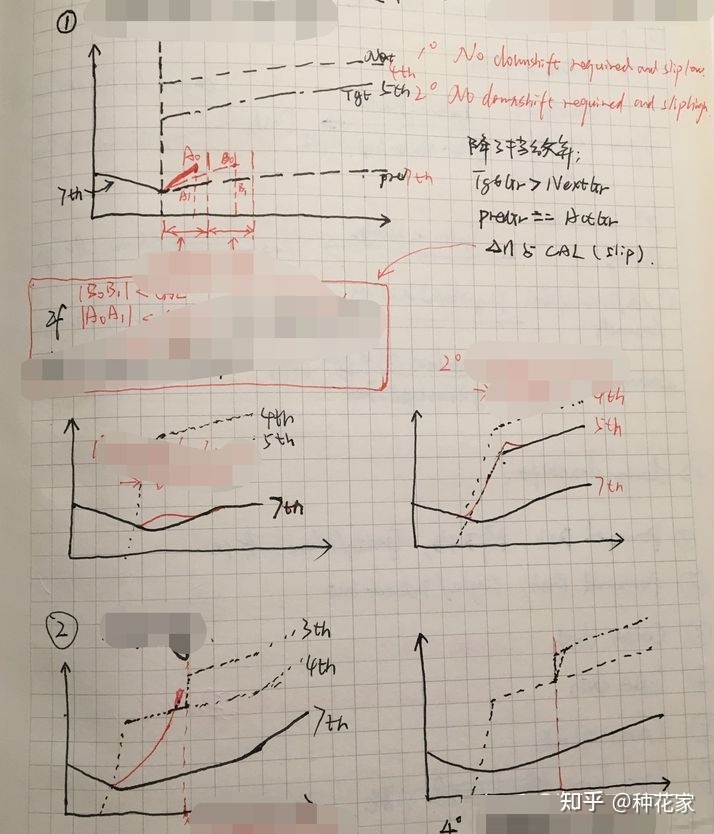 ①
Next
4th
1° No downshift required and slip low.
Tgt 5th
2° No downshift required and slip high
降了挡给条件;
TgtGr > NextGr
preGr == ActGr
Δn 与 CAL (slip).
7th
A0
B0
A1
B1
pre 7th
If
|B0B1| <
|A0A1| <
2°
4th
5th
7th
1°
4th
5th
7th
②
3th
4th
7th
4°
知乎 @种花家